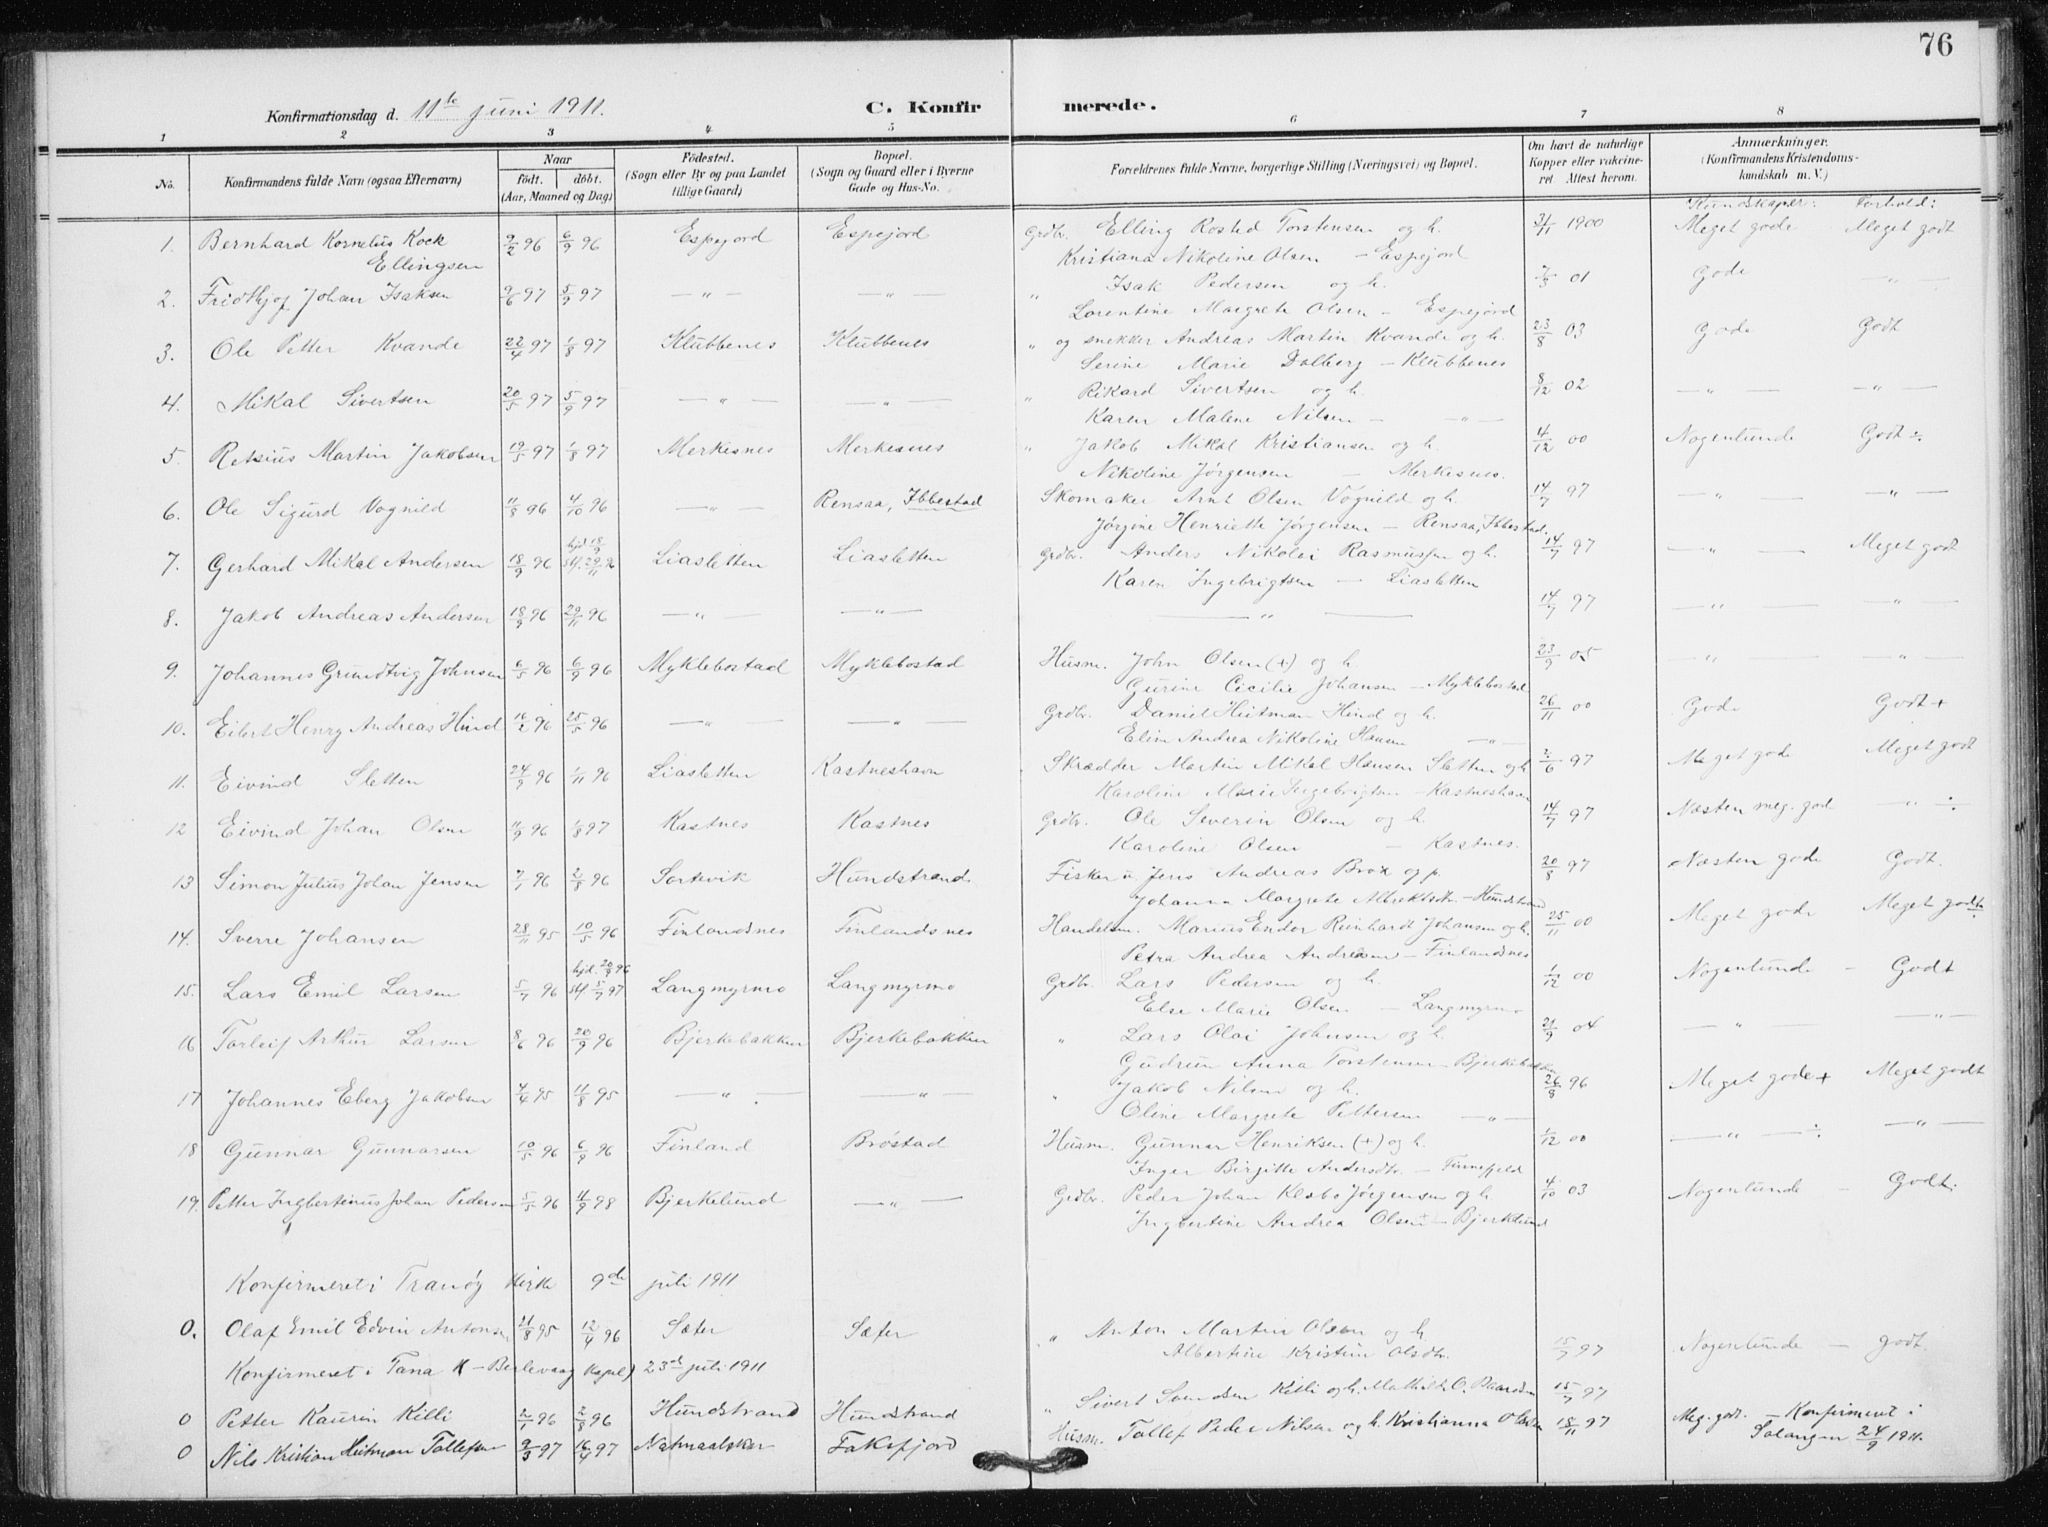 76
Konfirmationsdag d. 11te juni 1911. C. Konfirmerede.
1 2 3 4 5 6 7 8
No. Konfirmandens fulde Navn (ogsaa Efternavn) Naar født. døbt. (Aar, Maaned og Dag) Fødested. (Sogn eller By og paa Landet tillige Gaard) Bopæl. (Sogn og Gaard eller i Byerne Gade og Hus-No. Forældrenes fulde Navne, borgerlige Stilling (Næringsvei) og Bopæl. Om havt de naturlige Kopper eller vakcineret. Attest herom. Anmærkninger. (Konfirmandens Kristendomskundskab m. V.)
Kundskaper: Forhold:
1. Bernhard Kornelius Kock 9/2 96 6/9 96 Espejord Espejord Grdbr. Elling Rosted Torstensen og h. 1900 Meget gode Meget godt
Ellingsen Kristiana Nikoline Olsen – Espejord
2. Fridthjof Johan Isaksen 9/6 97 5/9 97 — " — — " — " Isak Pedersen og h. 01 Gode — " —
Lorentine Margrete Olsen – Espejord
3. Ole Petter Kvande 22/4 97 1/8 97 Klubbenes Klubbenes " og snekker Andreas Martin Kvande og h. 23/8 03 Gode Godt
Serine Marie Dalberg – Klubbenes
4. Mikal Sivertsen 20/5 97 5/9 97 — " — — " — " Rikard Sivertsen og h. 8/12 02 — " — — " —
Karen Malene Nilsen – — " —
5. Retsius Martin Jakobsen 19/5 97 1/8 97 Merkesnes Merkesnes " Jakob Mikal Kristiansen og h. 4/12 00 Nogenlunde Godt ÷
Nikoline Jørgensen – Merkesnes.
6. Ole Sigurd Vognild 11/8 96 4/10 96 — " — Rensaa, Ibbestad Skomaker Arnt Olsen Vognild og h. 14/7 97 — " — — " —
Jørgine Henriette Jørgensen – Rensaa, Ibbestad.
7. Gerhard Mikal Andersen 18/9 96 hjd. 18/9 stf. 29/11 96 Liasletten Liasletten Grdbr. Anders Nikolai Rasmussen og h. 14/7 97 — " — Meget godt
Karen Ingebrigtsen – Liasletten
8. Jakob Andreas Andersen 18/9 96 29/11 96 — " — — " — — " — 14/7 97 — " — — " —
9. Johannes Grundtvig Johnsen 6/5 96 6/9 96 Myklebostad Myklebostad Husm. John Olsen (+) og h. 23/9 05 — " — — " —
Gurine Cicilie Johansen – Myklebostad
10. Eilert Henry Andreas Hind 96 25/5 96 — " — — " — Grdbr. Daniel Hitman Hind og h. 26/11 00 Gode Godt +
Elin Andrea Nikoline Hansen — " —
11. Eivind Sletten 24/9 96 1/11 96 Liasletten Kastneshavn Skrædder Martin Mikal Hansen Sletten og h. 2/6 97 Meget gode Meget godt
Karoline Marie Ingebrigtsen – Kastneshavn
12 Eivind Johan Olsen 11/9 96 1/8 97 Kastnes Kastnes Grdbr. Ole Severin Olsen og h. 14/7 97 Næsten meg. gode — " — ÷
Karoline Olsen – Kastnes.
13 Simon Julius Johan Jensen 7/1 96 2/8 96 Sortevik Hundstrand Fisker u. Jens Andreas Brox og p. 20/8 97 Næsten gode Godt.
Johanna Margrete Albrektsdtr. – Hundstrand
14. Sverre Johansen 28/11 95 10/5 96 Finlandsnes Finlandsnes Handelsm. Marius Endor Reinhardt Johansen og h. 25/11 00 Meget gode Meget godt
Petra Andrea Andreasen – Finlandsnes
15. Lars Emil Larsen 5/7 96 hjd. 20/9 96 stf. 5/9 97 Langmyrmo Langmyrmo Grdbr. Lars Pedersen og h. 1/12 00 Nogenlunde – Godt
Else Marie Olsen – Langmyrmo
16 Torleif Arthur Larsen 8/6 96 20/9 96 Bjerkebakken Bjerkebakken " Lars Olai Johansen og h. 21/9 04 — " — — " —
Gudrun Anna Torstensen – Bjerkebakken
17 Johannes Eberg Jakobsen 4/4 95 11/8 95 — " — — " — " Jakob Nilsen og h. 26/8 96 Meget gode + Meget godt
Oline Margrete Pettersen — " —
18 Gunnar Gunnarsen 10/5 96 6/9 96 Finland Brøstad Husm. Gunnar Henriksen (+) og h. 1/12 00 — " — ÷ — " —
Inger Birgitte Andersdtr. – Finnefjeld
19. Petter Ingbertinus Johan Pedersen 5/5 96 11/9 98 Bjerkelund — " — Grdbr. Peder Johan Klæbo Jørgensen og h. 4/10 03 Nogenlunde – Godt.
Ingbertine Andrea Olsen – Bjerklund
Konfirmeret i Tranøy Kirke 9de juli 1911
0. Olaf Emil Edvin Antonsen 21/8 95 12/4 96 Sæter Sæter " Anton Martin Olsen og h.
Albertine Kristine Olsdtr. 15/7 97 Nogenlunde – godt.
Konfirmeret i Tana K – Berlevaag Kapel) 23de juli 1911
0 Petter Kaurin Killi 96 2/8 96 Hundstrand Hundstrand " Sivert Svendsen Killi og h. Mathilde O. Baardsen 15/7 97
0 Nils Kristian Hitman Tollefsen 9/3 97 16/4 97 Faksfjord Husm. Tollef Peder Nilsen og h. Kristianna Olsen 18/11 97 Meg. godt. – Konfirmeret i
Salangen 24/9 1911.